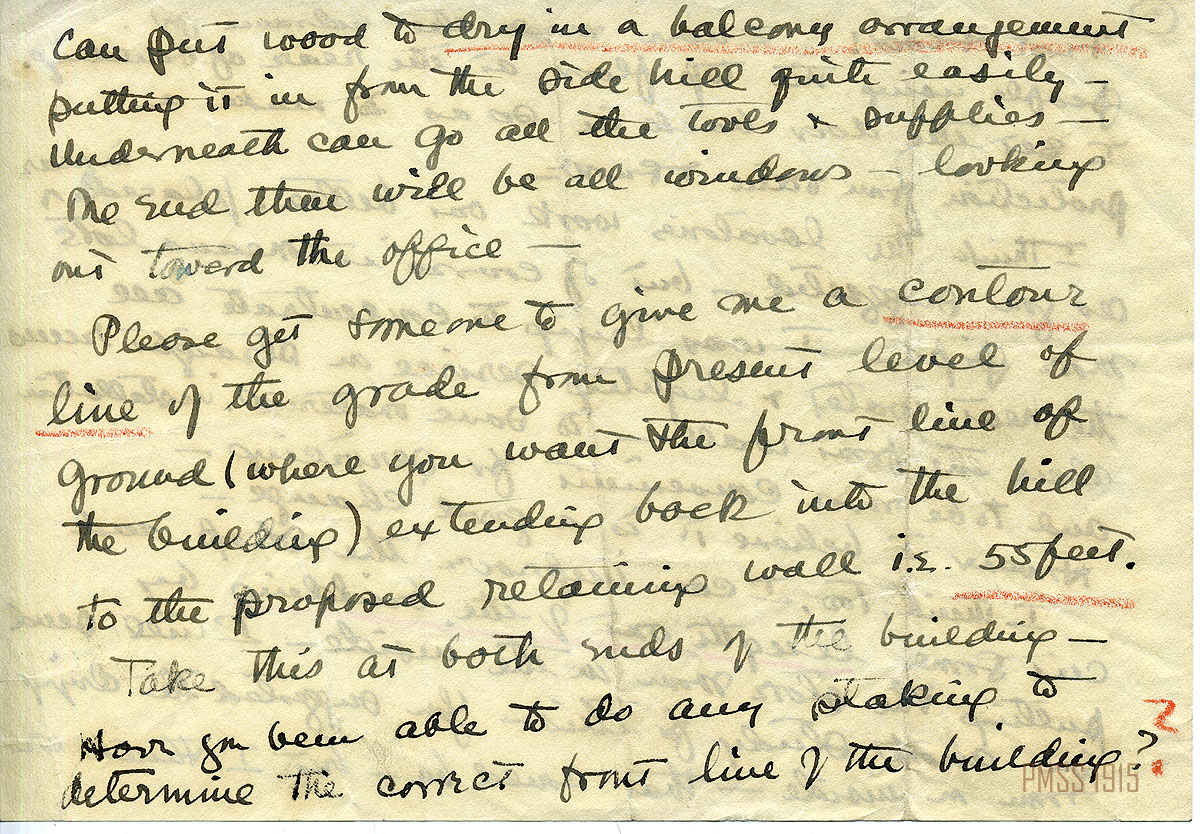 can put wood to dry in a balcony arrangement
putting it in from the side hill quite easily –
Underneath can go all the tools & supplies –
One end then will be all windows – looking
out toward the office –
Please get someone to give me a contour
line of the grade from present level of
ground (where you want the front line of
the building) extending back into the hill
to the proposed retaining wall i.e. 55 feet.
Take this at both ends of the building –
Have you been able to do any staking to
determine the correct front line of the building?
?
PMSS 1915